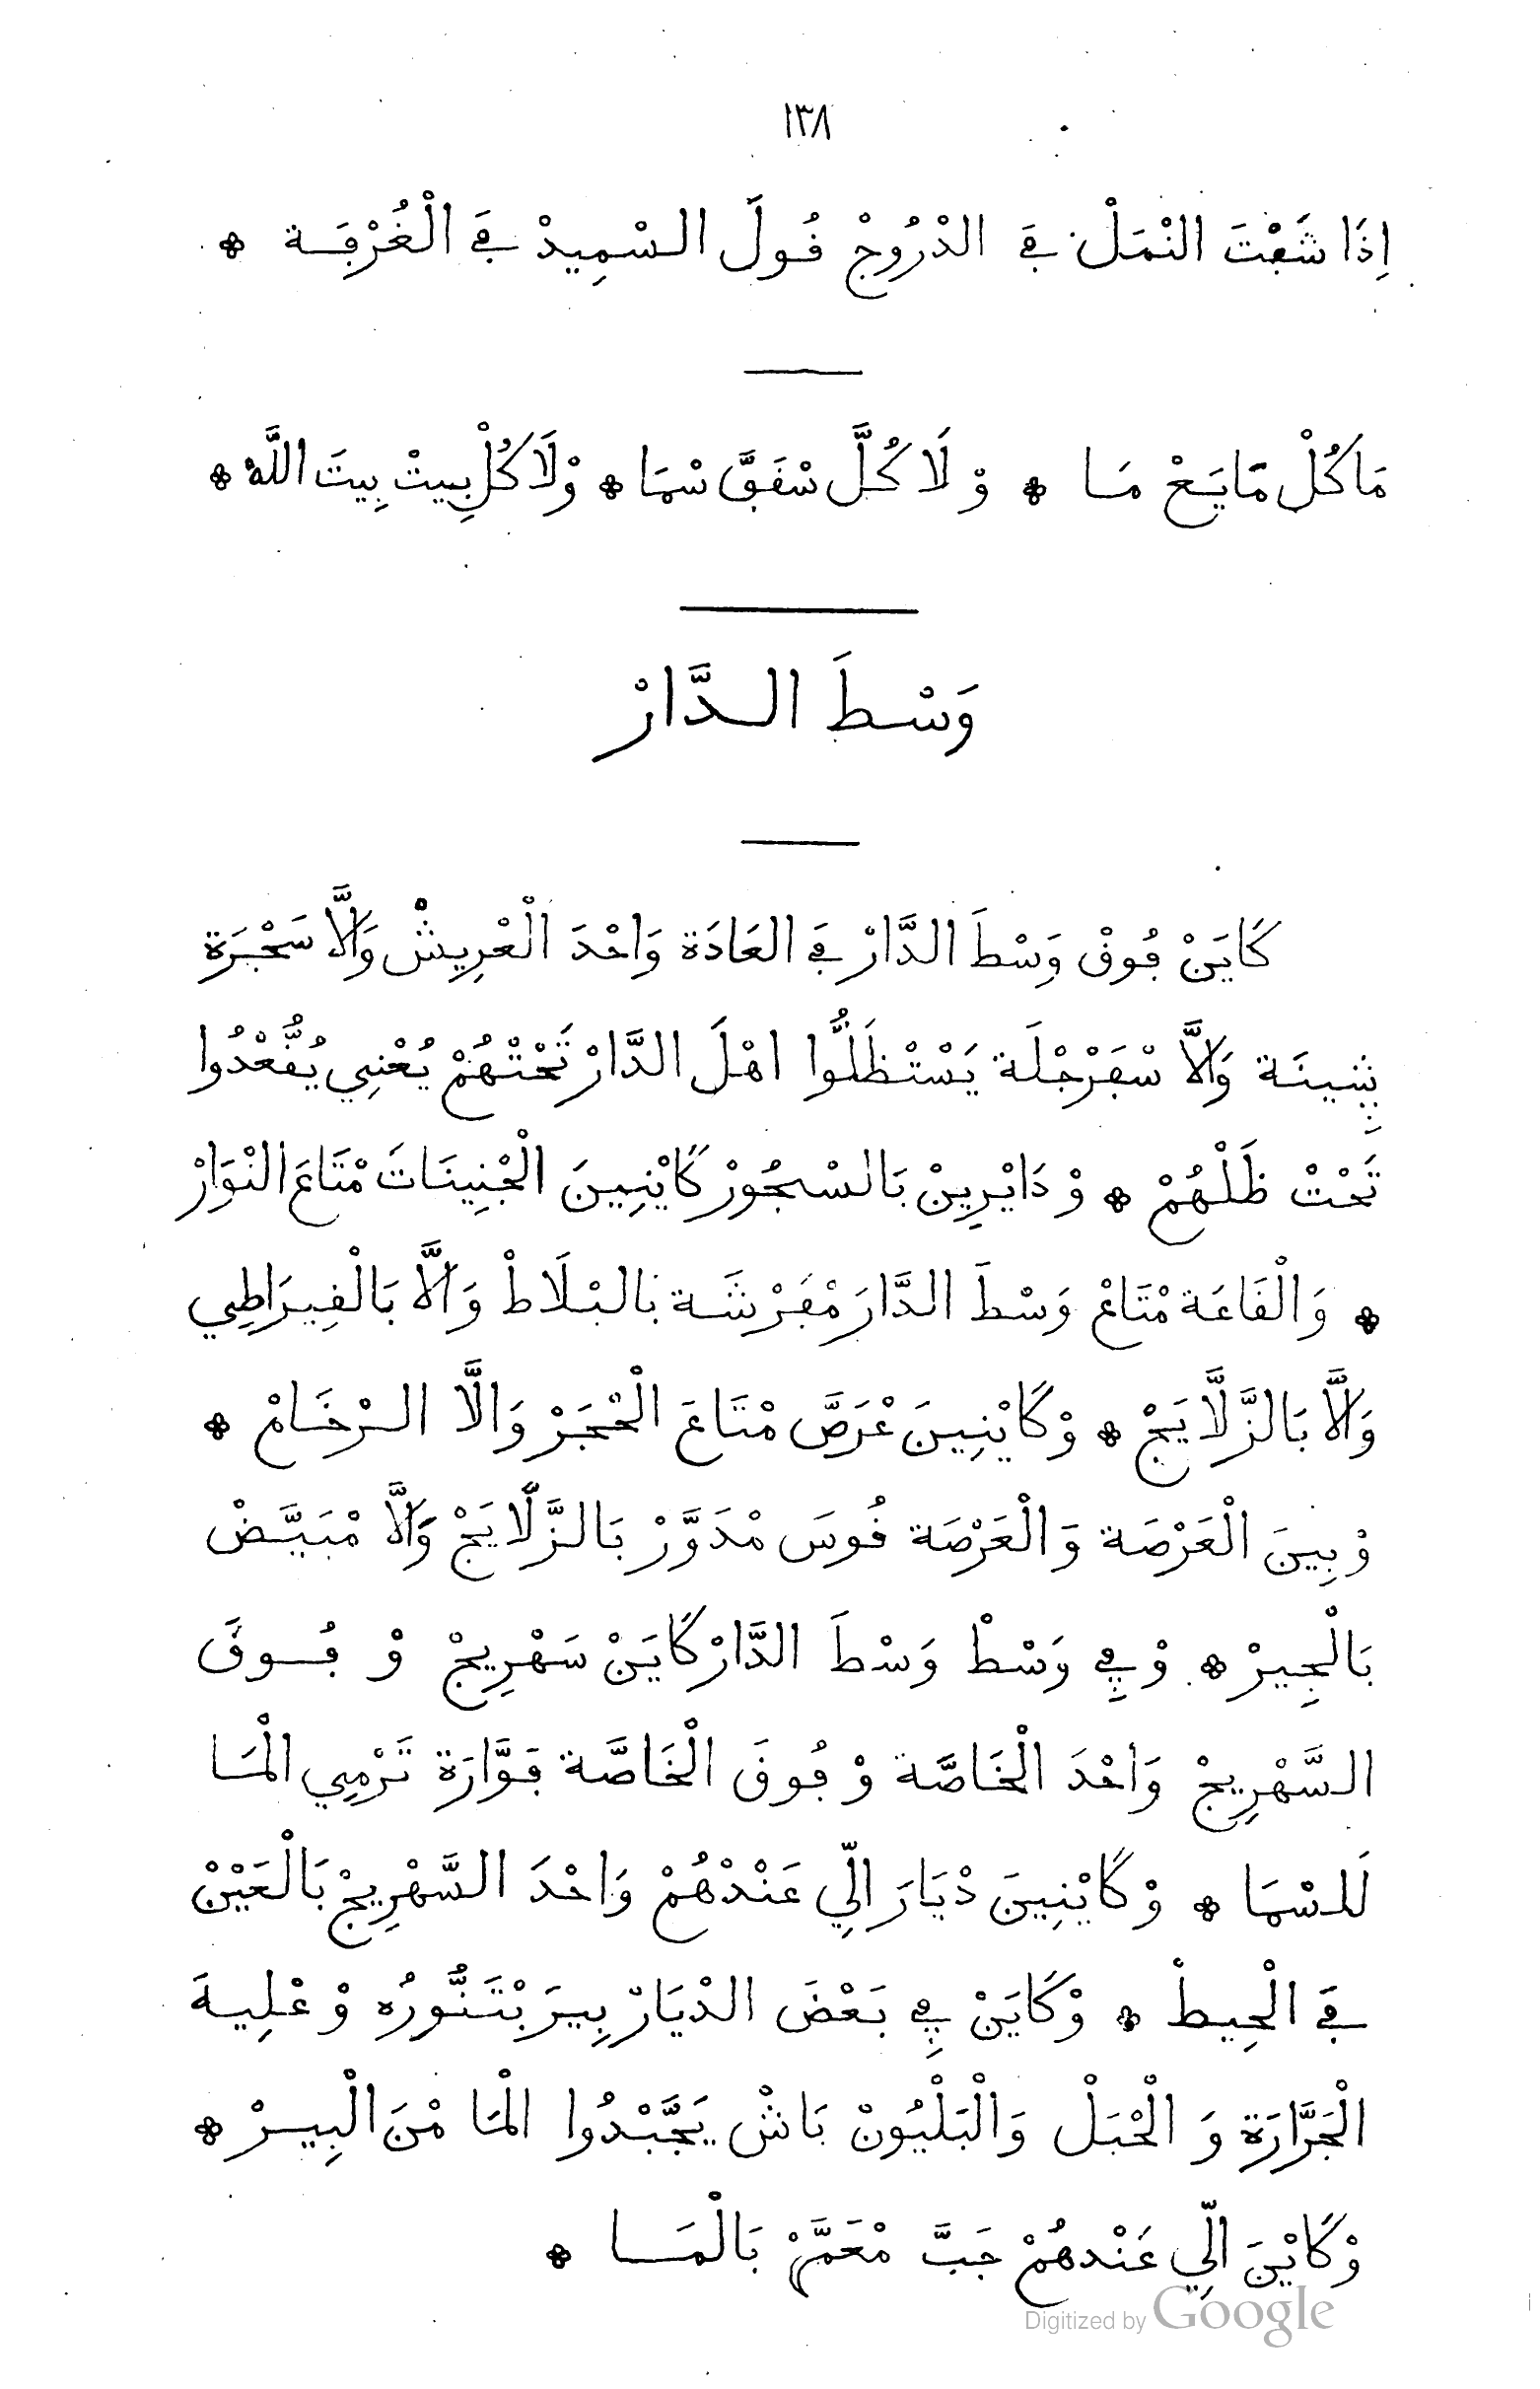 ١٣٨
اِذَا شَڢْتَ النْمَلْ ڢَے الدْرُوجْ ڧُولَ السْمِيدْ ڢَے الْغُرْڢَـة *
مَا كُلْ مَّايَعْ مَـا * وْ لَا كُلَّ سْڧَڢَّ سْمَا * وْلَا كُلْ بِيتْ بِيتَ اللَّهْ *
وَسْطَ الـدَّارْ
كَايَنْ ڢُوڧْ وَسْطَ الدَّارْ ڢَے العَادَة وَاحْدَ الْعْرِيشْ وَالَّا سَجْرَة
بِنِينَة وَالَّا سْڢَرْجْلَة يَسْتْظَلُّوا اهْلَ الدَّارْ تَحْتْهُمْ يُعْنِي يُڧُّعْدُوا
تَحْتْ ظَلْهُمْ * وْ دَايْرِينْ بَالسْجُورْ كَايْنِينَ الجْنِينَاتَ مْتَاعَ النْوَارْ
* وَالْڧَاعَة مْتَاعْ وَسْطَ الدَّارَ مْڢَرْشَـة بَالبْلَاطْ وَالَّا بَالْڧِيرَاطِي
وَالَّا بَالزَّلَّايَجْ * وْكَايْنِينَ عْرَصَّ مْتَاعَ الْحْجَرْ وَالَّا الـرْخَـامْ *
وْبِينَ الْعَرْصَة وَالْعَرْصَة ڧُوسَ مْدَوَّرْ بَالـزَّلَّايَجْ وَالَّا مْبَيَّـضْ
بَالْجِيرْ * وْڢِي وَسْطْ وَسْطَ الدَّارْ كَايَنْ سَهْرِيجْ وْ ڢُـوڧَ
السَّهْرِيجْ وَاحْدَ الْخَاصَّة وْ ڢُوڧَ الْخَاصَّة ڢَوَّارَة تَرْمِي الْمَـا
لَلسْمَا * وْكَايْنِينَ دْيَارَ الِّي عَنْدْهُمْ وَاحْدَ السَّهْرِيجْ بَالْعَيْنْ
ڢَے الْحِيطْ * وْكَايَنْ ڢِي بَعْضَ الدْيَارْ بِيرَ بْتَنُّورُه وْ عْلِيـهَ
الْجَرَّارَة وَ الْحْبَلْ وَالْبَلْيُونْ بَاشْ يَجَّبْدُوا الْمَا مْنَ الْبِيـرْ *
وْكَايْنَ الِّي عَنْدهُمْ جَبَّ مْعَمَّرْ بَالْمَـا *
Digitized by Google